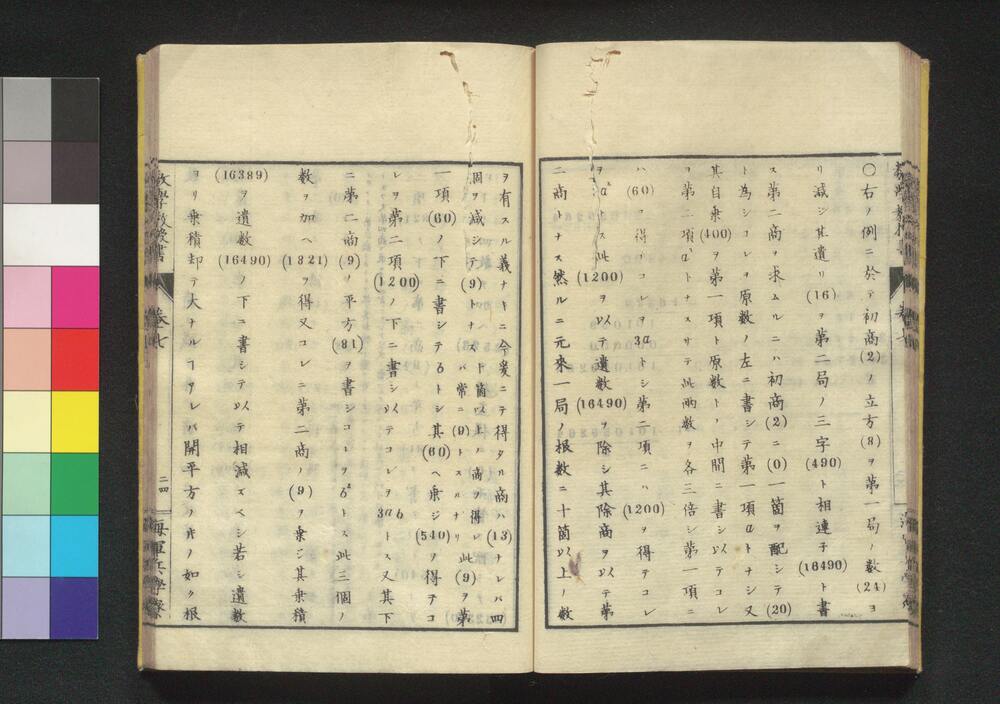 〇右ノ例ニ於テ初商(2)ノ立方(8)ヲ第一局ノ數(24)ヨ
リ減シ其遺リ(16)ヲ第二局ノ三字(490)ト相連子(16490)ト書
ス第二商ヲ求ムルニハ初商(2)ニ(0)一箇ヲ配シテ(20)
ト為シコレヲ原數ノ左ニ書シテ第一項aトナシ又
其自乗(400)ヲ第一項ト原數トノ中間ニ書シ以テコレ
ヲ第二項a²トナスサテ此兩數ヲ各三倍シ第一項ニ
ハ(60)ヲ得テコレヲ3aトシ第二項ニハ(1200)ヲ得テコレ
ヲ a²トス此(1200)ヲ以テ遺數(16490)ヲ除シ其除商ヲ以テ第
二商トナス然ルニ元來一局ノ根數ニ十箇以上ノ數
ヲ有スル義ナキニ今爰ニテ得タル商ハ(13)ナレバ四
箇ヲ減シテ(9)トナス 十箇以上ノ商ヲ得レバ常ニ(9)トスルナリ 此(9)ヲ第
一項(60)ノ下ニ書シテbトシ其(60)ヘ乗ジ(540)ヲ得テコ
レヲ第二項(1200)ノ下ニ書シ以テコレヲ3abトス又其下
ニ第二商(9)ノ平方(81)ヲ書シコレヲb²トス此三個ノ
數ヲ加ヘ(1821)ヲ得又コレニ第二商ノ(9)ヲ乗シ其乗積
(16389)ヲ遺數(16490)ノ下ニ書シテ以テ相減ズベシ若シ遺數
ヨリ乗積却テ大ナルヿアレバ開平方ノ時ノ如ク根
數學教授書 卷七 二四 海軍兵學寮